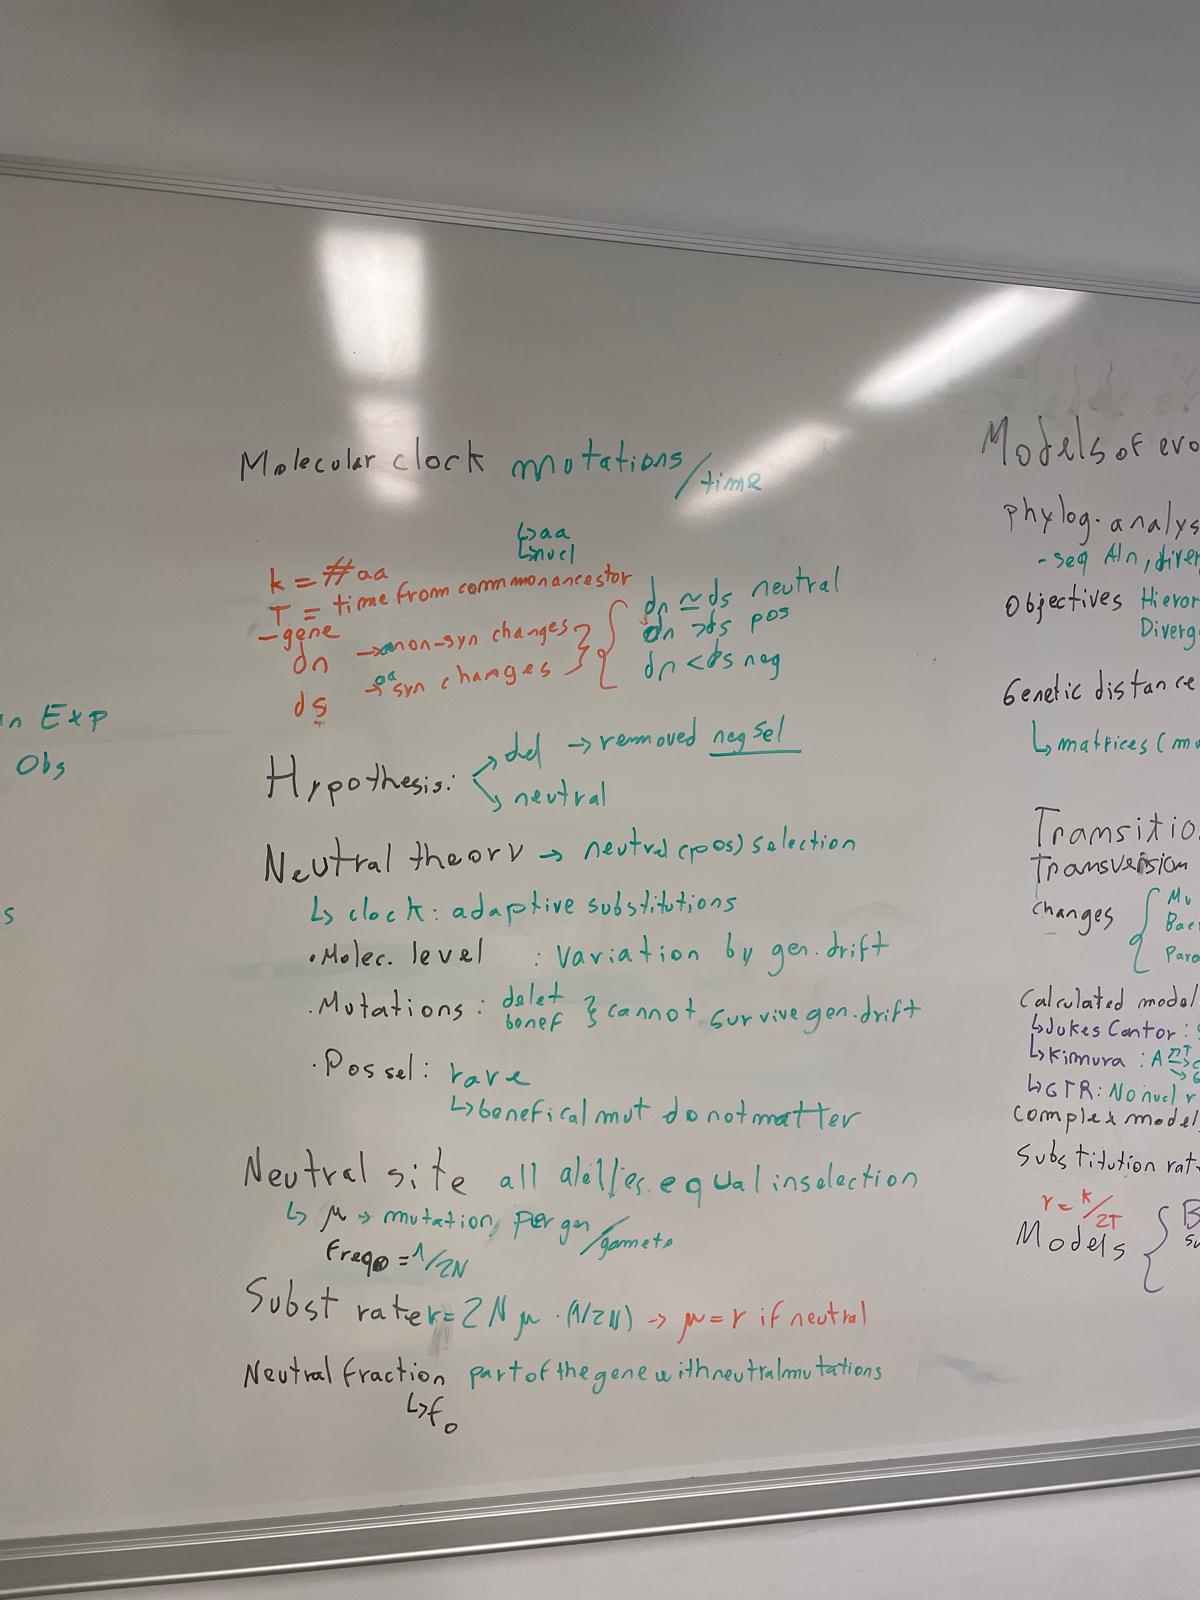 Molecular clock mutations/time
↳aa
↳nucl
k = #aa
T = time from common ancestor
-gene
dn → non-syn changes
ds → syn changes
dn ≃ ds neutral
dn > ds pos
dn < ds neg
Hypothesis: → del → removed neg sel
↘ neutral
Neutral theory → neutral (pos) selection
↳ clock: adaptive substitutions
• Molec. level : variation by gen. drift
• Mutations : delet
benef } cannot survive gen. drift
• Pos sel: rare
↳ benefical mut do not matter
Neutral site all alelles equal in selection
↳ μ → mutation per gen/gamete
Freq0 = 1/2N
Subst rate r = 2Nμ · (1/2N) → μ = r if neutral
Neutral fraction part of the gene with neutral mutations
↳ f0
n Exp
Obs
s
Models of evo
phylog. analys
- seq Aln, diver
Objectives Hieror
Diverg
Genetic distance
↳ matrices (mu
Transitio
Transversion
changes { Mu
Bac
Para
Calculated model
↳ Jukes Cantor :
↳ Kimura : A
↳ GTR: No nucl r
complex model
Substitution rat
r = k/2T
Models {